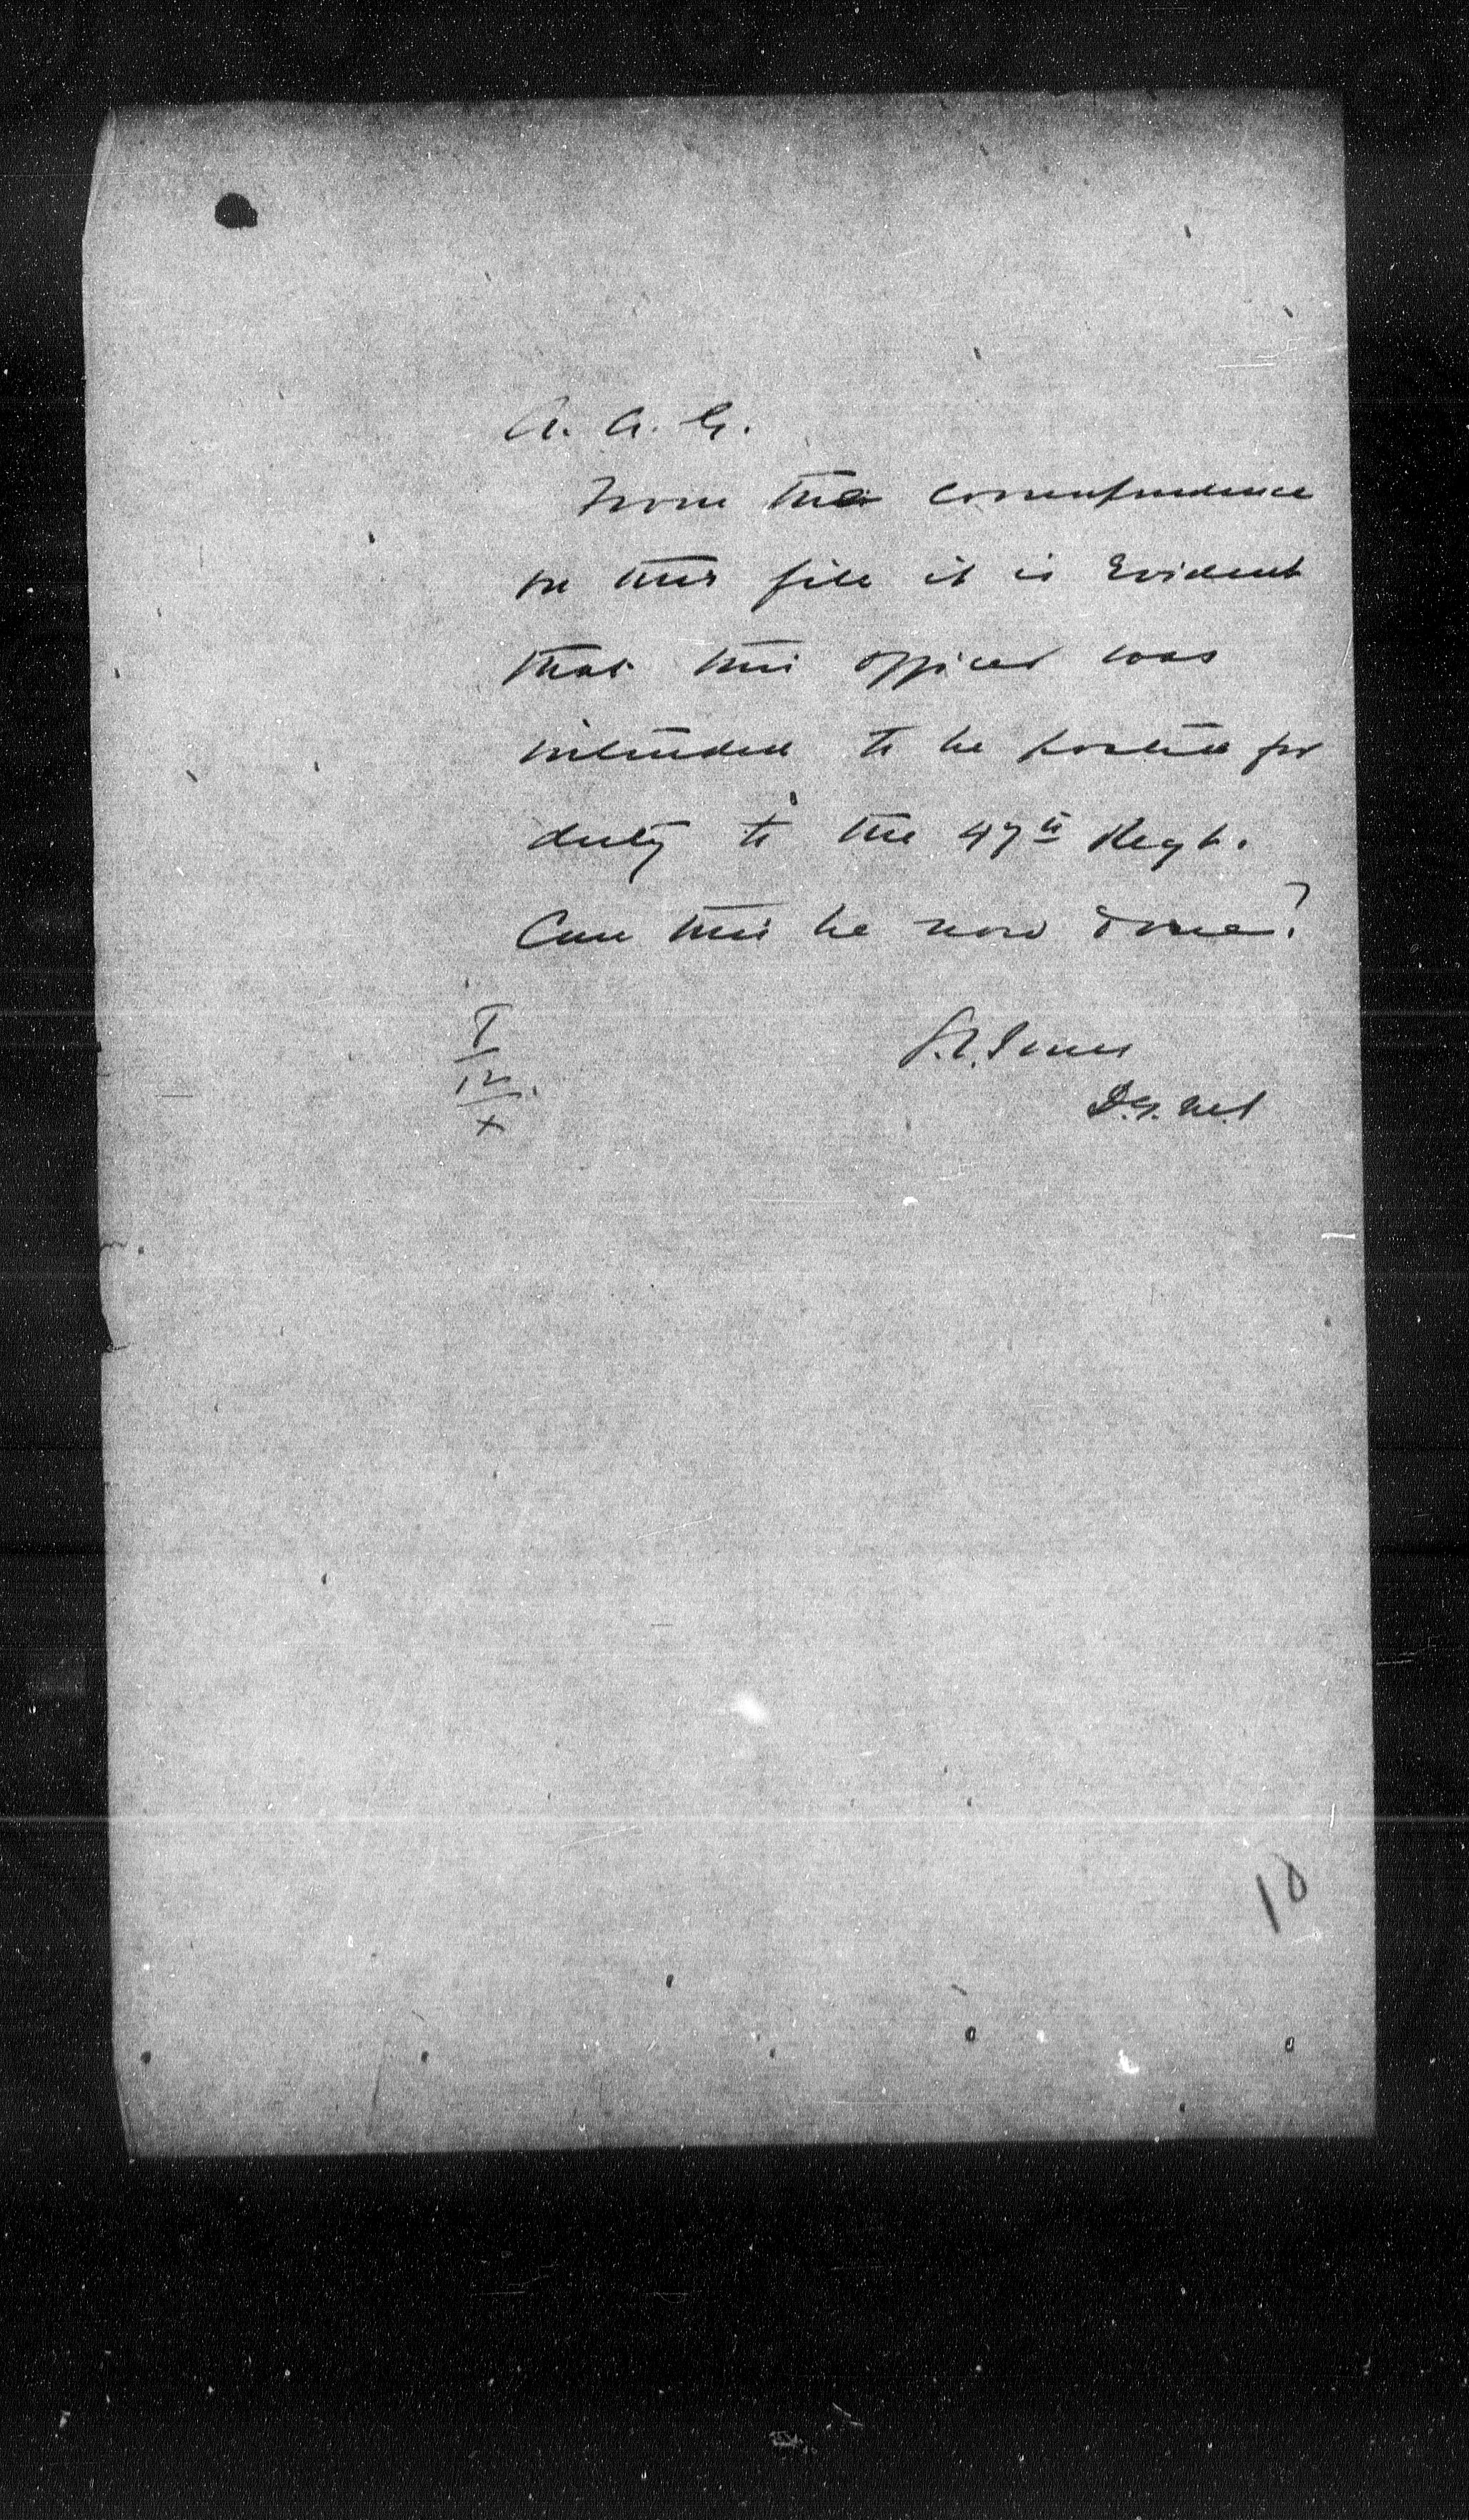 A. A. G.
From the correspondence
on this file it is evident
that this officer was
intended to be posted for
duty to the 47th Regt.
Can this be now done?
I
IV
X
D.G.M.S
10